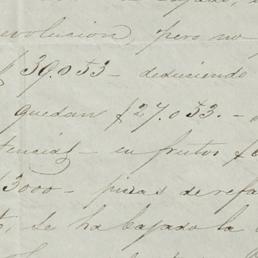 evolucion, pero no
$ 30.053 - deduciendo
quedan $27.053. -
tencial - en frutos $6
$3000 - piezas de refa
se ha bajado la